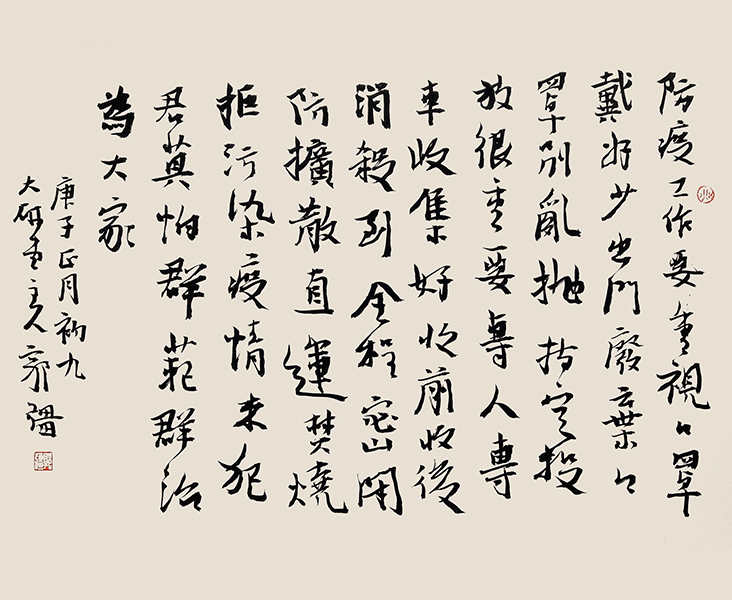 防疫工作要重視口罩
戴好少出門廢棄口
罩别亂抛指定投
放很重要專人專
車收集好收前收後
消殺到全程密閉
防擴散直運焚燒
拒污染疫情来犯
君莫怕群範群治
為大家
庚子正月初九
大研主人郭